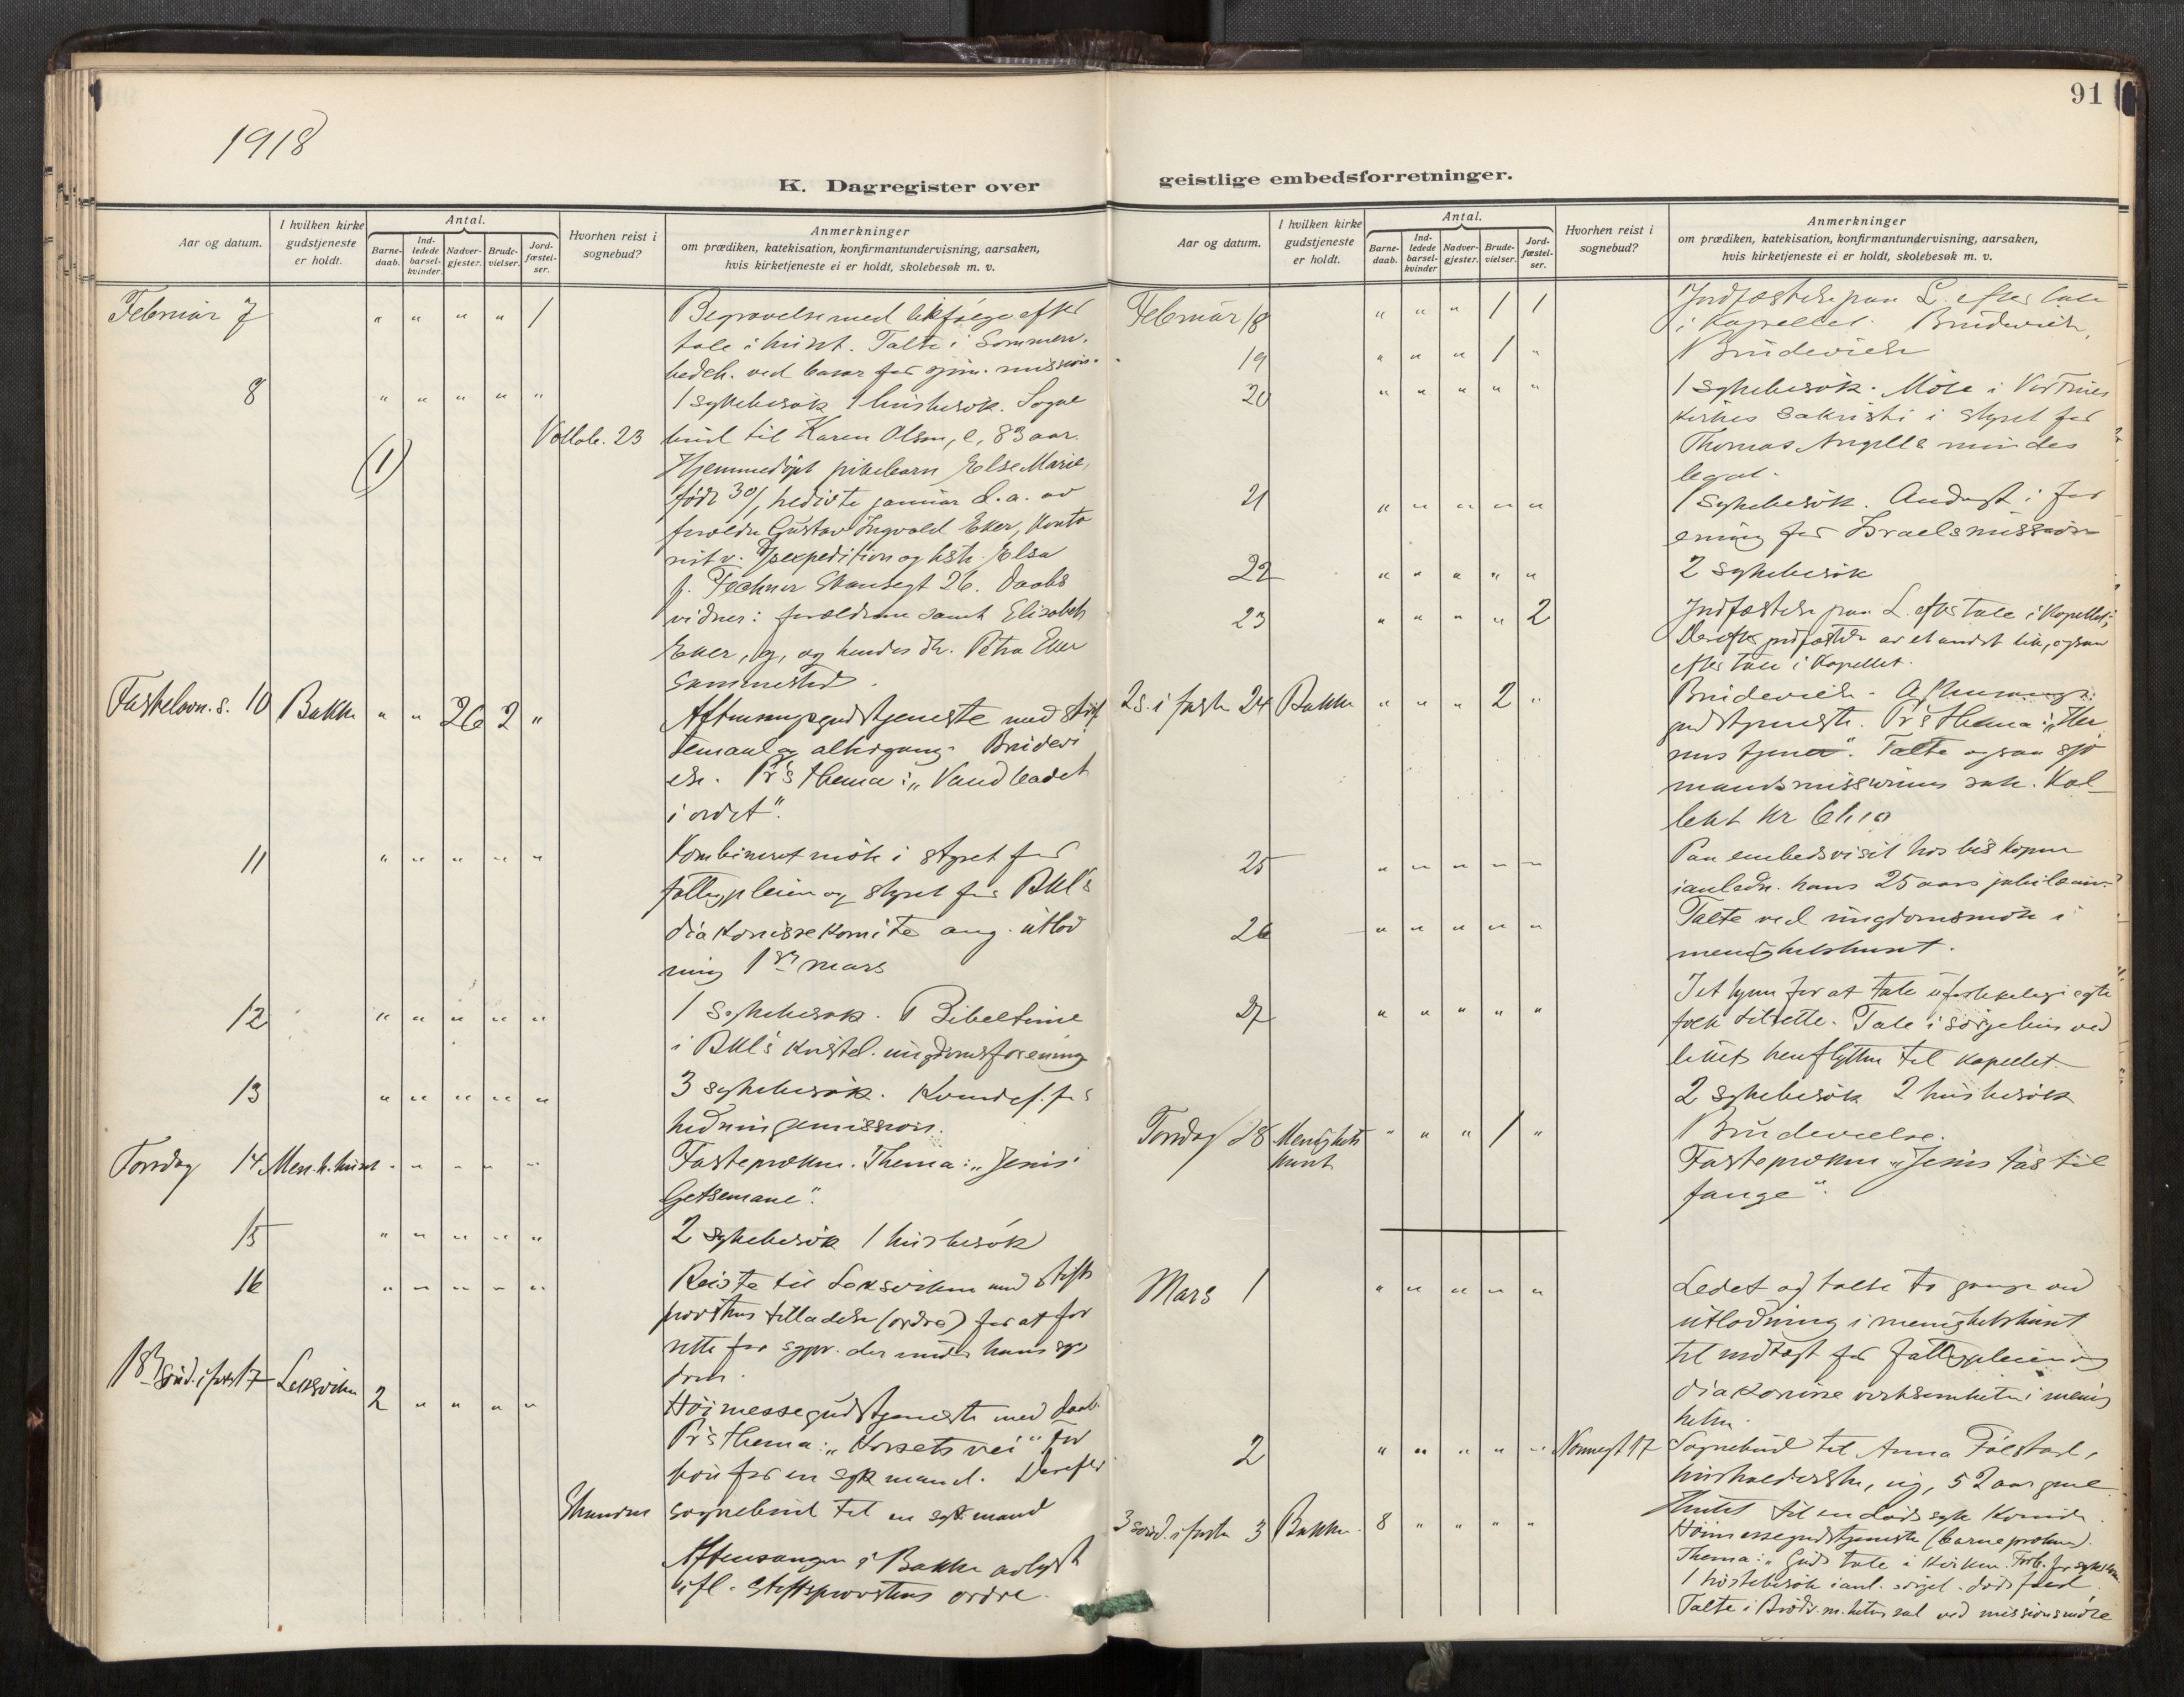 1918
K. Dagregister over
Aar og datum.
I hvilken kirke
gudstjeneste
er holdt.
Antal.
Barne-
daab.
Ind-
ledede
barsel-
kvinder.
Nadver-
gjester.
Brude-
vielser.
Jord-
fæstel-
ser.
Hvorhen reist i
sognebud?
Anmerkninger
om prædiken, katekisation, konfirmantundervisning, aarsaken,
hvis kirketjeneste ei er holdt, skolebesøk m. v.
Februar 7 " " " " 1 Begravelse med likfølge efter
tale i huset. Talte i
ved basar for mission.
8 " " " " " 1 sykebesøk 1 husbesøk. Sogne
Vollab. 23 bud til Karen Olsen, e, 83 aar.
(1) Hjemmedøpt pikebarn Else Marie,
født 30/ januar d. a. av
forældre Gustav Ingvald Eker, Konto
rist v. og hstr. Elsa
f. Fechner 26. Daabs
vidner: forældrene samt Elisabeth
Eker, og hendes dtr. Petra Eker
sammested.
Fastelavn. s. 10 Bakke " " 26 2 " Aftensangsgudstjeneste med skrif
temaal og altergang. Brudevi
else. Pr's thema: "Vandbadet
i ordet".
11 " " " " " Kombineret møte i styret for
fattigpleien og styret for Bkl's
diakonissekomite ang. utlod
ning 1ste mars
12 " " " " " 1 sykebesøk. Bibeltime
i Bkl's kristel. ungdomsforening
13 " " " " " 3 sykebesøk. Kvindef. for
hedningemission.
Torsdag 14 Men.h.huset " " " " " Fasteprækn. Thema: "Jesus i
Getsemane".
15 " " " " " 2 sykebesøk 1 husbesøk
16 " " " " " Reiste til Leksviken med stifts
provstens tilladelse (ordre) for at for
rette for sgpr. der under hans syg
dom.
1ste sønd. i faste 17 Leksviken 2 " " " " Høimessegudstjeneste med daab.
Pr's thema: "Korsets vei" For
bøn for en syk mand. Derefter
sognebud til en syk mand
Aftensangen i Bakke avlyst
ifl. Stiftsprovstens ordre.
91
geistlige embedsforretninger.
Aar og datum.
I hvilken kirke
gudstjeneste
er holdt.
Antal.
Barne-
daab.
Ind-
ledede
barsel-
kvinder
Nadver-
gjester.
Brude-
vielser.
Jord-
fæstel-
ser.
Hvorhen reist i
sognebud?
Anmerkninger
om prædiken, katekisation, konfirmantundervisning, aarsaken,
hvis kirketjeneste ei er holdt, skolebesøk m. v.
Februar 18 " " " 1 1 Jordfæstelse paa L. efter tale
i Kapellet. Brudevielse,
19 " " " 1 " Brudevielse
20 " " " " " 1 sykebesøk. Møte i Vor Frues
kirkes sakristi i styret for
Thomas Angells mindes
legat.
21 " " " " " 1 sykebesøk. Andagt i for
ening for Israelsmission
22 " " " " " 2 sykebesøk
23 " " " " 2 Jordfæstelse paa L. efter tale i Kapellet;
Derefter jordfæstelse av et andet lik, ogsaa
efter tale i Kapellet.
2 s. i faste 24 Bakke " " " 2 " Brudevielse. Aftensangs-
gudstjeneste. Pr's thema: "Her
rens tjener". Talte ogsaa sjø
mandsmissionens sak. Kol
lekt kr 61,10
25 " " " " " Paa embedsvisit hos biskopen
i anledn. hans 25 aars jubilæum.
26 " " " " " Talte ved ungdomsmøte i
menighetshuset.
27 " " " " " I et hjem for at tale uforlikelige egte
folk tilrette. Tale i sørgehus ved
likets henflytten til kapellet.
2 sykebesøk 2 husbesøk
Torsdag 28 Menighets
huset " " " 1 " Brudevielse.
Fasteprækn "Jesus tas til
fange".
Mars 1 " " " " " Ledet og talte to gange ved
utlodning i menighetshuset
til indtægt for fattigpleien og
diakonisse virksomheten i menig
heten.
2 " " " " " Nonnegt 17 Sognebud til Anna Tølstad,
husholderske, ug, 52 aar gml
Hentet til en dødssyk kvinde.
3 sønd. i faste 3 Bakke. 8 " " " " Høimessegudstjeneste (barneprækn).
Thema: "Guds tale i kirken. Forb. for syk kvin.
1 husbesøk i anl. dødsfald
Talte i ved missionsmøte